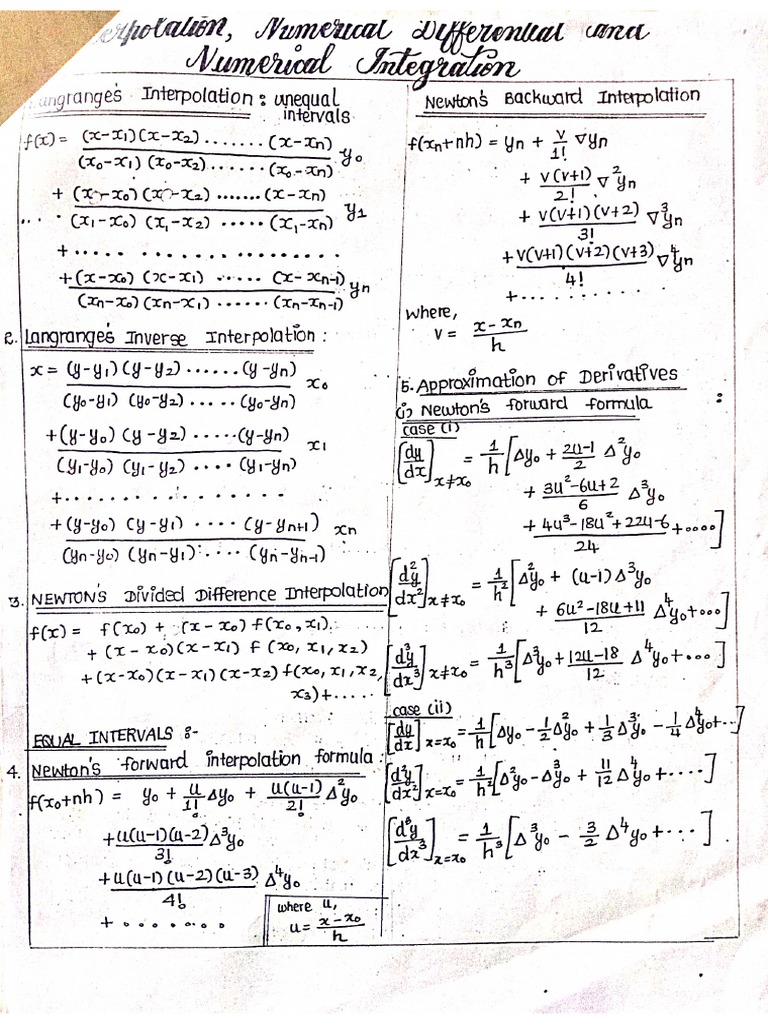 Interpolation, Numerical Differential and
Numerical Integration
Langrange's Interpolation : unequal
intervals
f(x) = (x-x1)(x-x2) ....... (x-xn) / (x0-x1) (x0-x2) ...... (x0-xn) y0
+ (x-x0)(x-x2) ....... (x-xn) / (x1-x0) (x1-x2) ..... (x1-xn) y1
+ ..... .............
+ (x-x0) (x-x1) ..... (x-xn-1) / (xn-x0) (xn-x1) ...... (xn-xn-1) yn
2. Langrange's Inverse Interpolation :
x = (y-y1)(y-y2) ...... (y-yn) / (y0-y1) (y0-y2) ..... (y0-yn) x0
+ (y-y0) (y-y2) ..... (y-yn) / (y1-y0) (y1-y2) .... (y1-yn) x1
+ .................
+ (y-y0) (y-y1) .... (y-yn+1) / (yn-y0) (yn-y1) .... (yn-yn-1) xn
3. NEWTON'S Divided Difference Interpolation
f(x) = f(x0) + (x-x0) f(x0,x1)
+ (x-x0)(x-x1) f(x0,x1,x2)
+ (x-x0)(x-x1)(x-x2) f(x0,x1,x2,
x3) + .....
EQUAL INTERVALS :-
4. Newton's forward interpolation formula :
f(x0+nh) = y0 + u/1! Δy0 + u(u-1)/2! Δ²y0
+ u(u-1)(u-2)/3! Δ³y0
+ u(u-1)(u-2)(u-3)/4! Δ⁴y0
+ ........
where u,
u = (x-x0)/h
Newton's Backward Interpolation
f(xn+nh) = yn + v/1! ∇yn
+ v(v+1)/2! ∇²yn
+ v(v+1)(v+2)/3! ∇³yn
+ v(v+1)(v+2)(v+3)/4! ∇⁴yn
+ ...........
where,
v = (x-xn)/h
5. Approximation of Derivatives :
(i) Newton's forward formula
case (i)
[dy/dx] x≠x0 = 1/h [Δy0 + (2u-1)/2 Δ²y0
+ (3u²-6u+2)/6 Δ³y0
+ (4u³-18u²+22u-6)/24 + ....]
[d²y/dx²] x≠x0 = 1/h² [Δ²y0 + (u-1)Δ³y0
+ (6u²-18u+11)/12 Δ⁴y0 + ...]
[d³y/dx³] x≠x0 = 1/h³ [Δ³y0 + (12u-18)/12 Δ⁴y0 + ...]
case (ii)
[dy/dx] x=x0 = 1/h [Δy0 - 1/2 Δ²y0 + 1/3 Δ³y0 - 1/4 Δ⁴y0 + ...]
[d²y/dx²] x=x0 = 1/h² [Δ²y0 - Δ³y0 + 11/12 Δ⁴y0 + ....]
[d³y/dx³] x=x0 = 1/h³ [Δ³y0 - 3/2 Δ⁴y0 + ...]